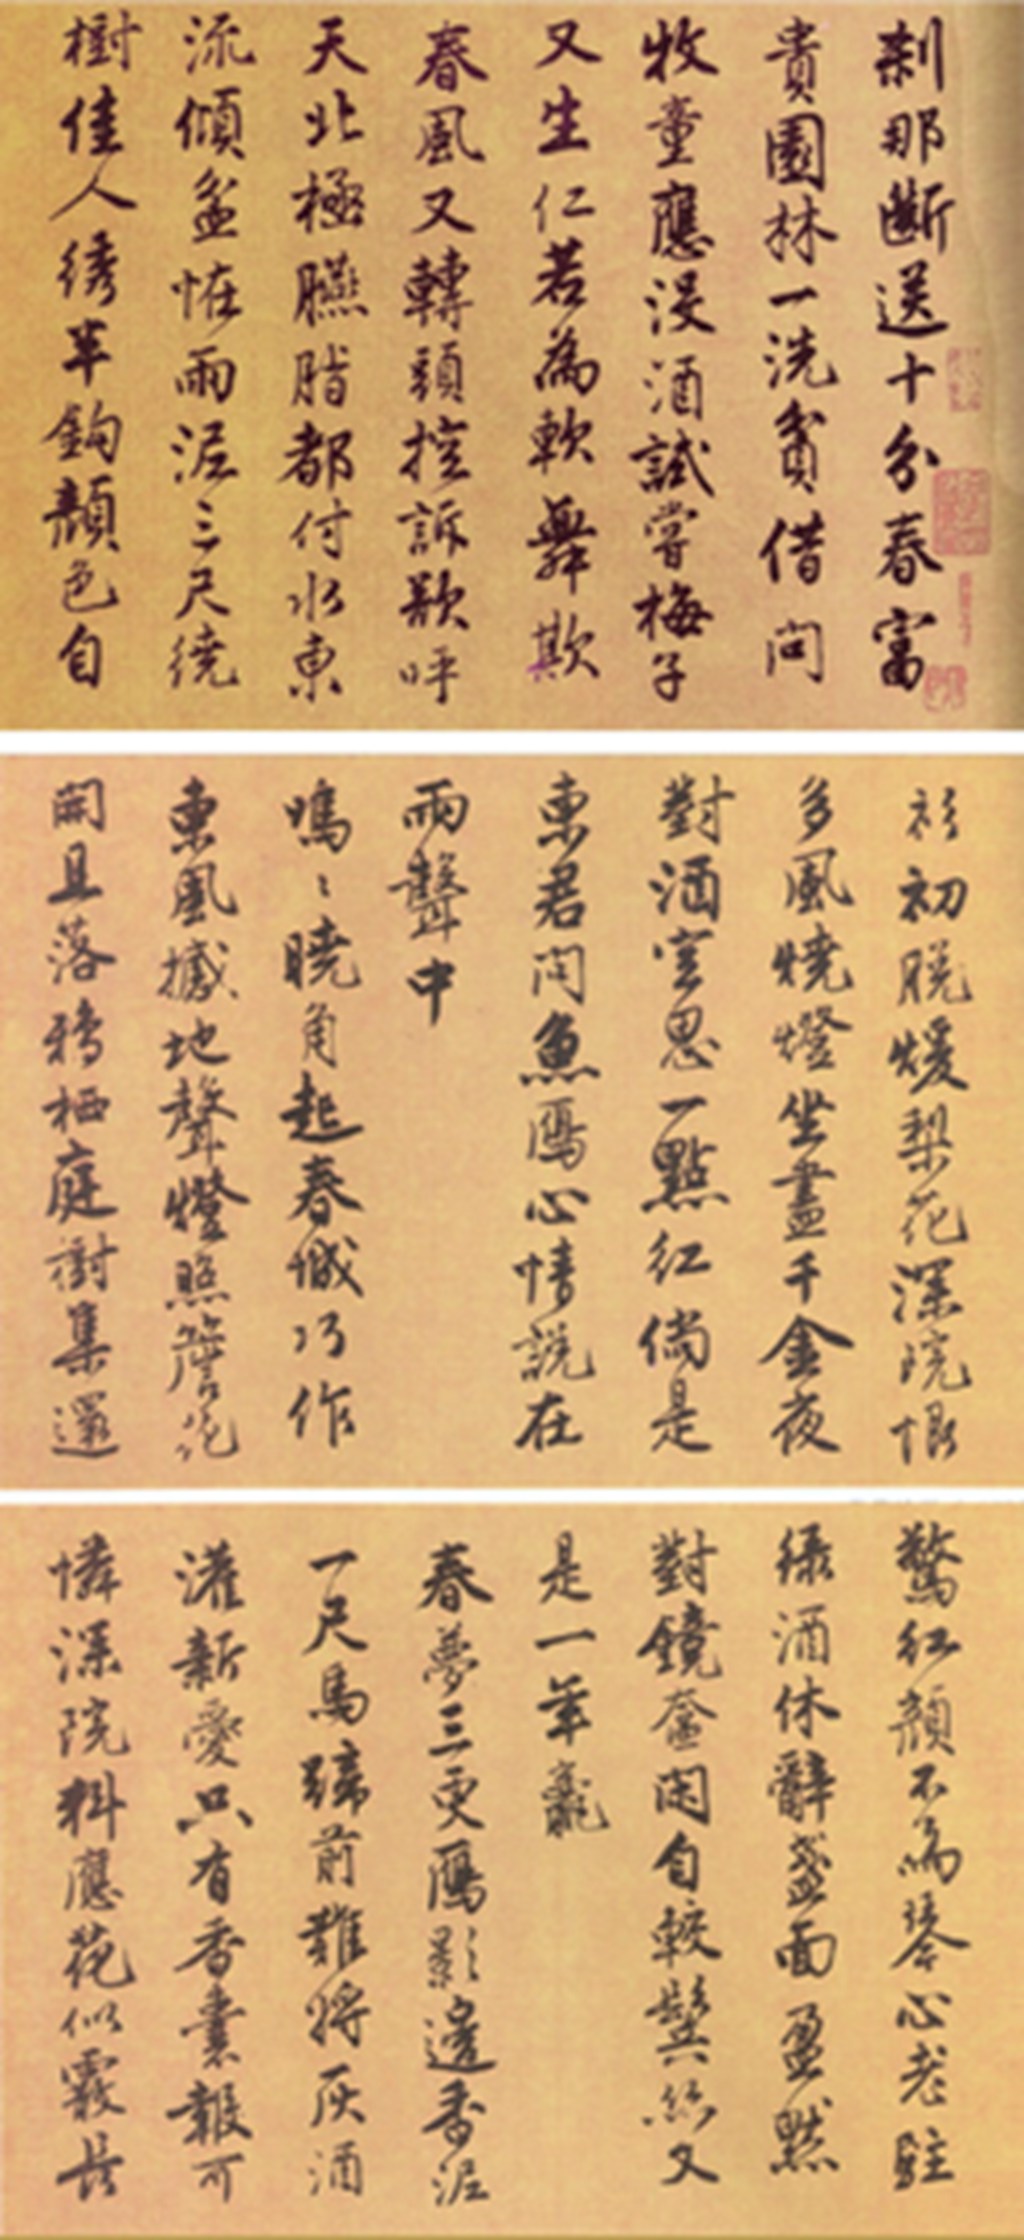 刹那斷送十分春富
貴園林一洗貧借問
牧童應没酒試嘗梅子
又生仁若為軟舞欺
春風又轉頭控訴歘呼
天北極臙脂都付水東
流傾盆恠雨泥三尺繞
樹佳人繡半鈎顏色自
衫初脱煖梨花深院恨
多風燒燈坐盡千金夜
對酒空思一點紅倘是
東君問魚鴈心情説在
雨聲中
鳴〻曉角起春城巧作
東風撼地聲燈照簷花
開且落鴉栖庭樹集還
驚紅顏不為琴心老駐
緑酒休辭盞面盈默
對鏡奩閑自較鬢絲又
是一年
春夢三更鴈影邊香泥
一尺馬蹄前難將灰酒
灌新愛只有香囊報可
憐深院料應花似霰長